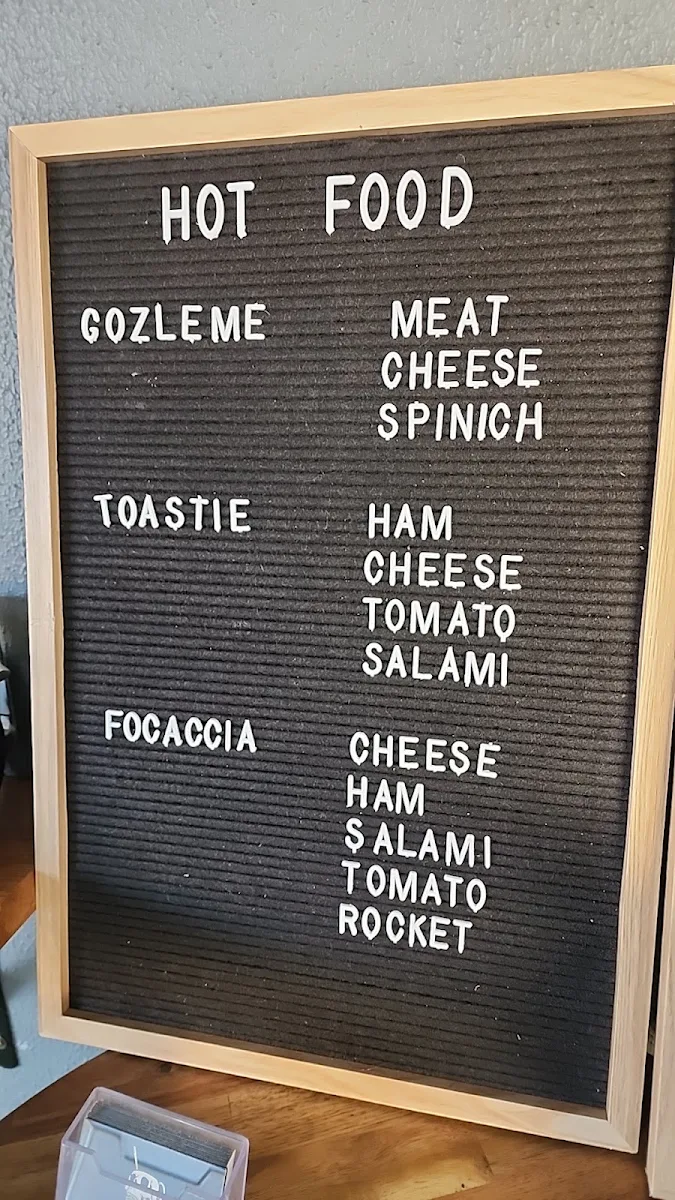 HOT FOOD
GOZLEME MEAT
CHEESE
SPINICH
TOASTIE HAM
CHEESE
TOMATO
SALAMI
FOCACCIA CHEESE
HAM
SALAMI
TOMATO
ROCKET